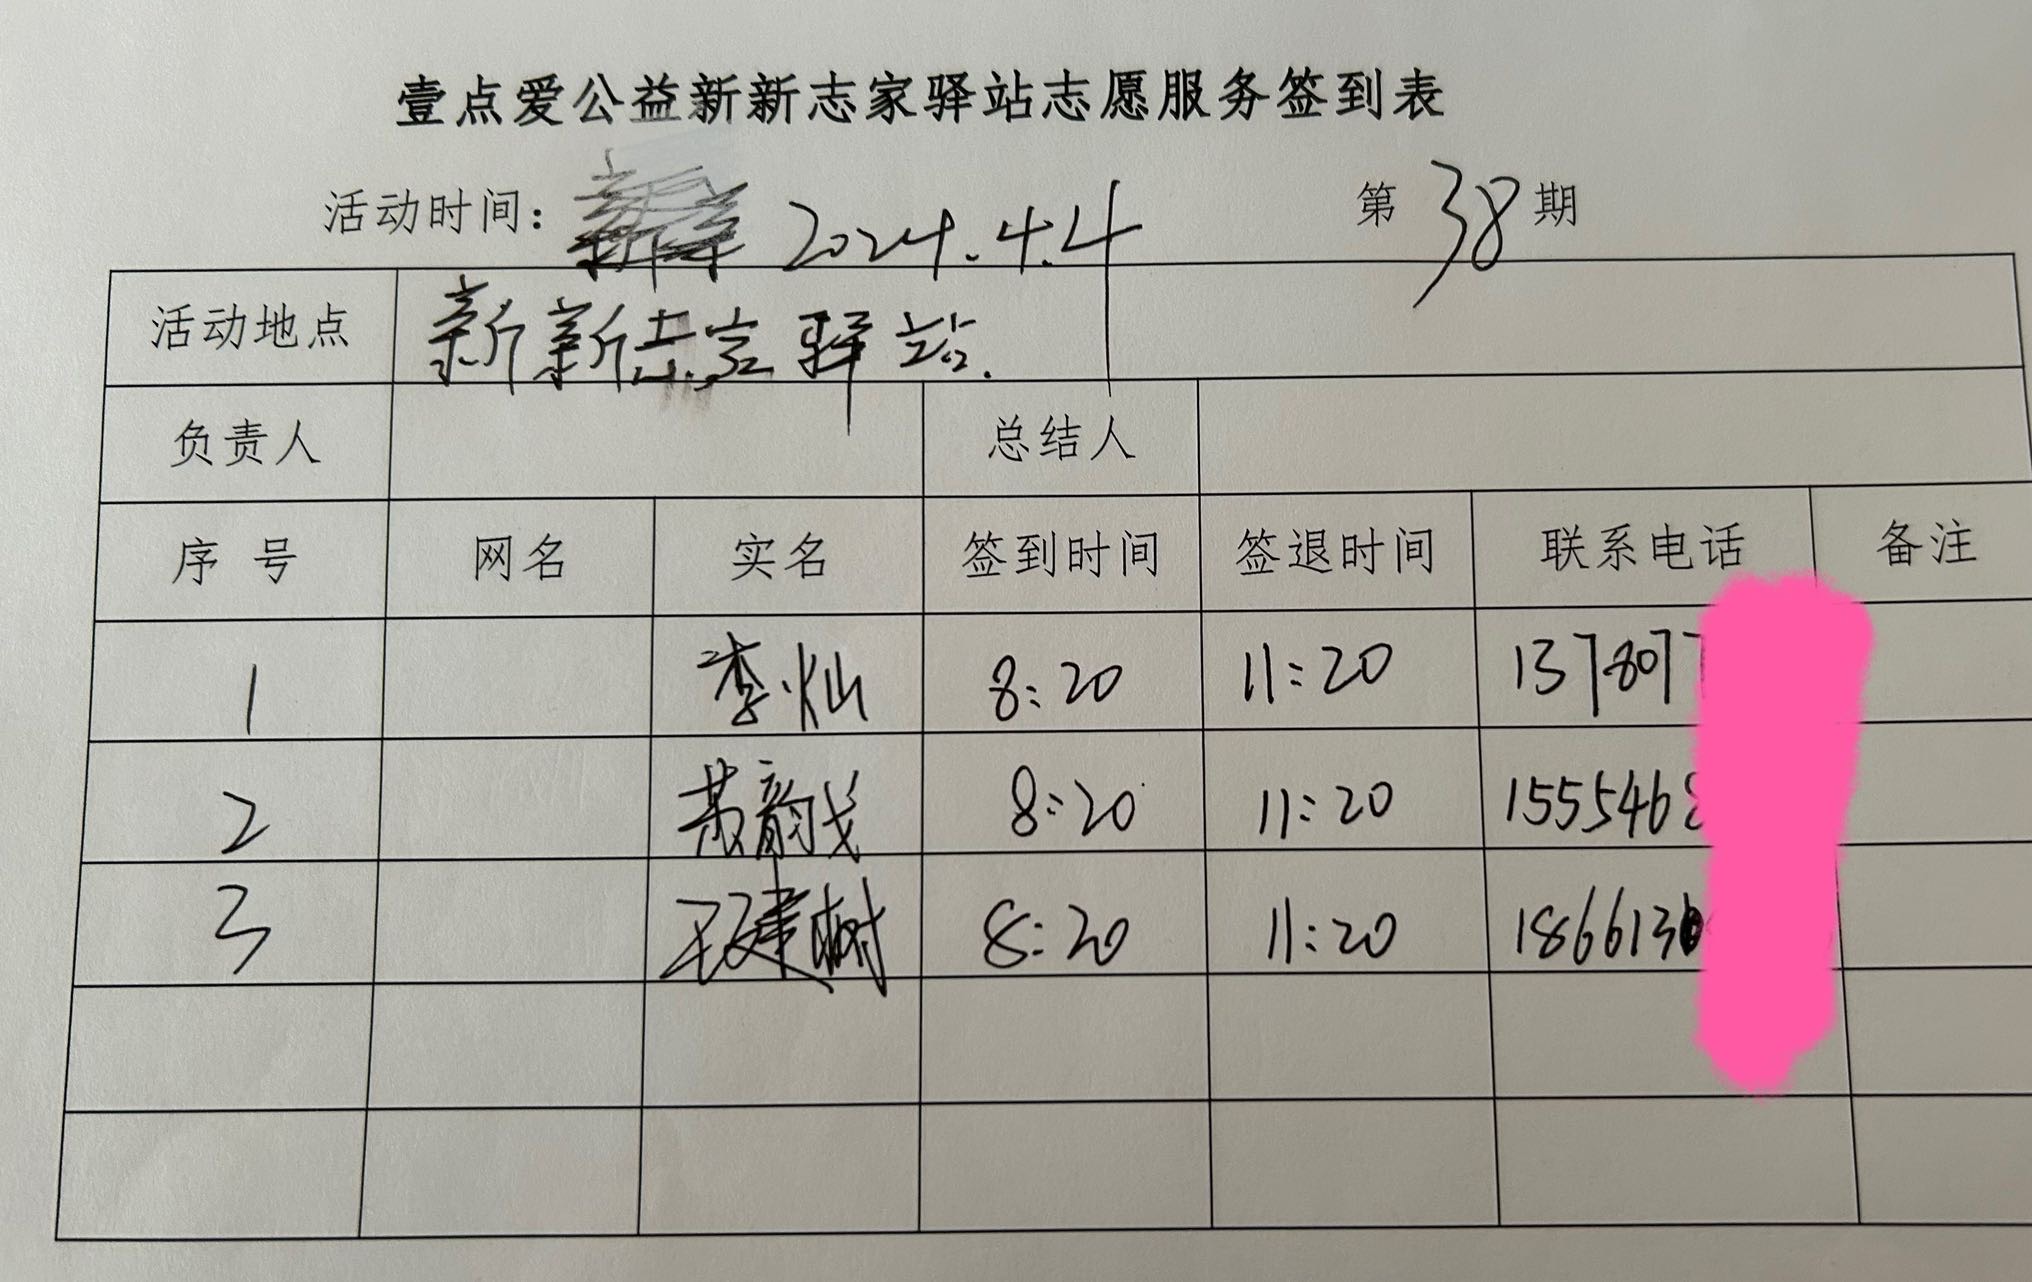 壹点爱公益新新志家驿站志愿服务签到表
活动时间： 2024.4.4 第38期
活动地点 新新志家驿站.
负责人 总结人
序号 网名 实名 签到时间 签退时间 联系电话 备注
1 李灿 8:20 11:20 137807
2 8:20 11:20 1555468
3 王建树 8:20 11:20 1866130